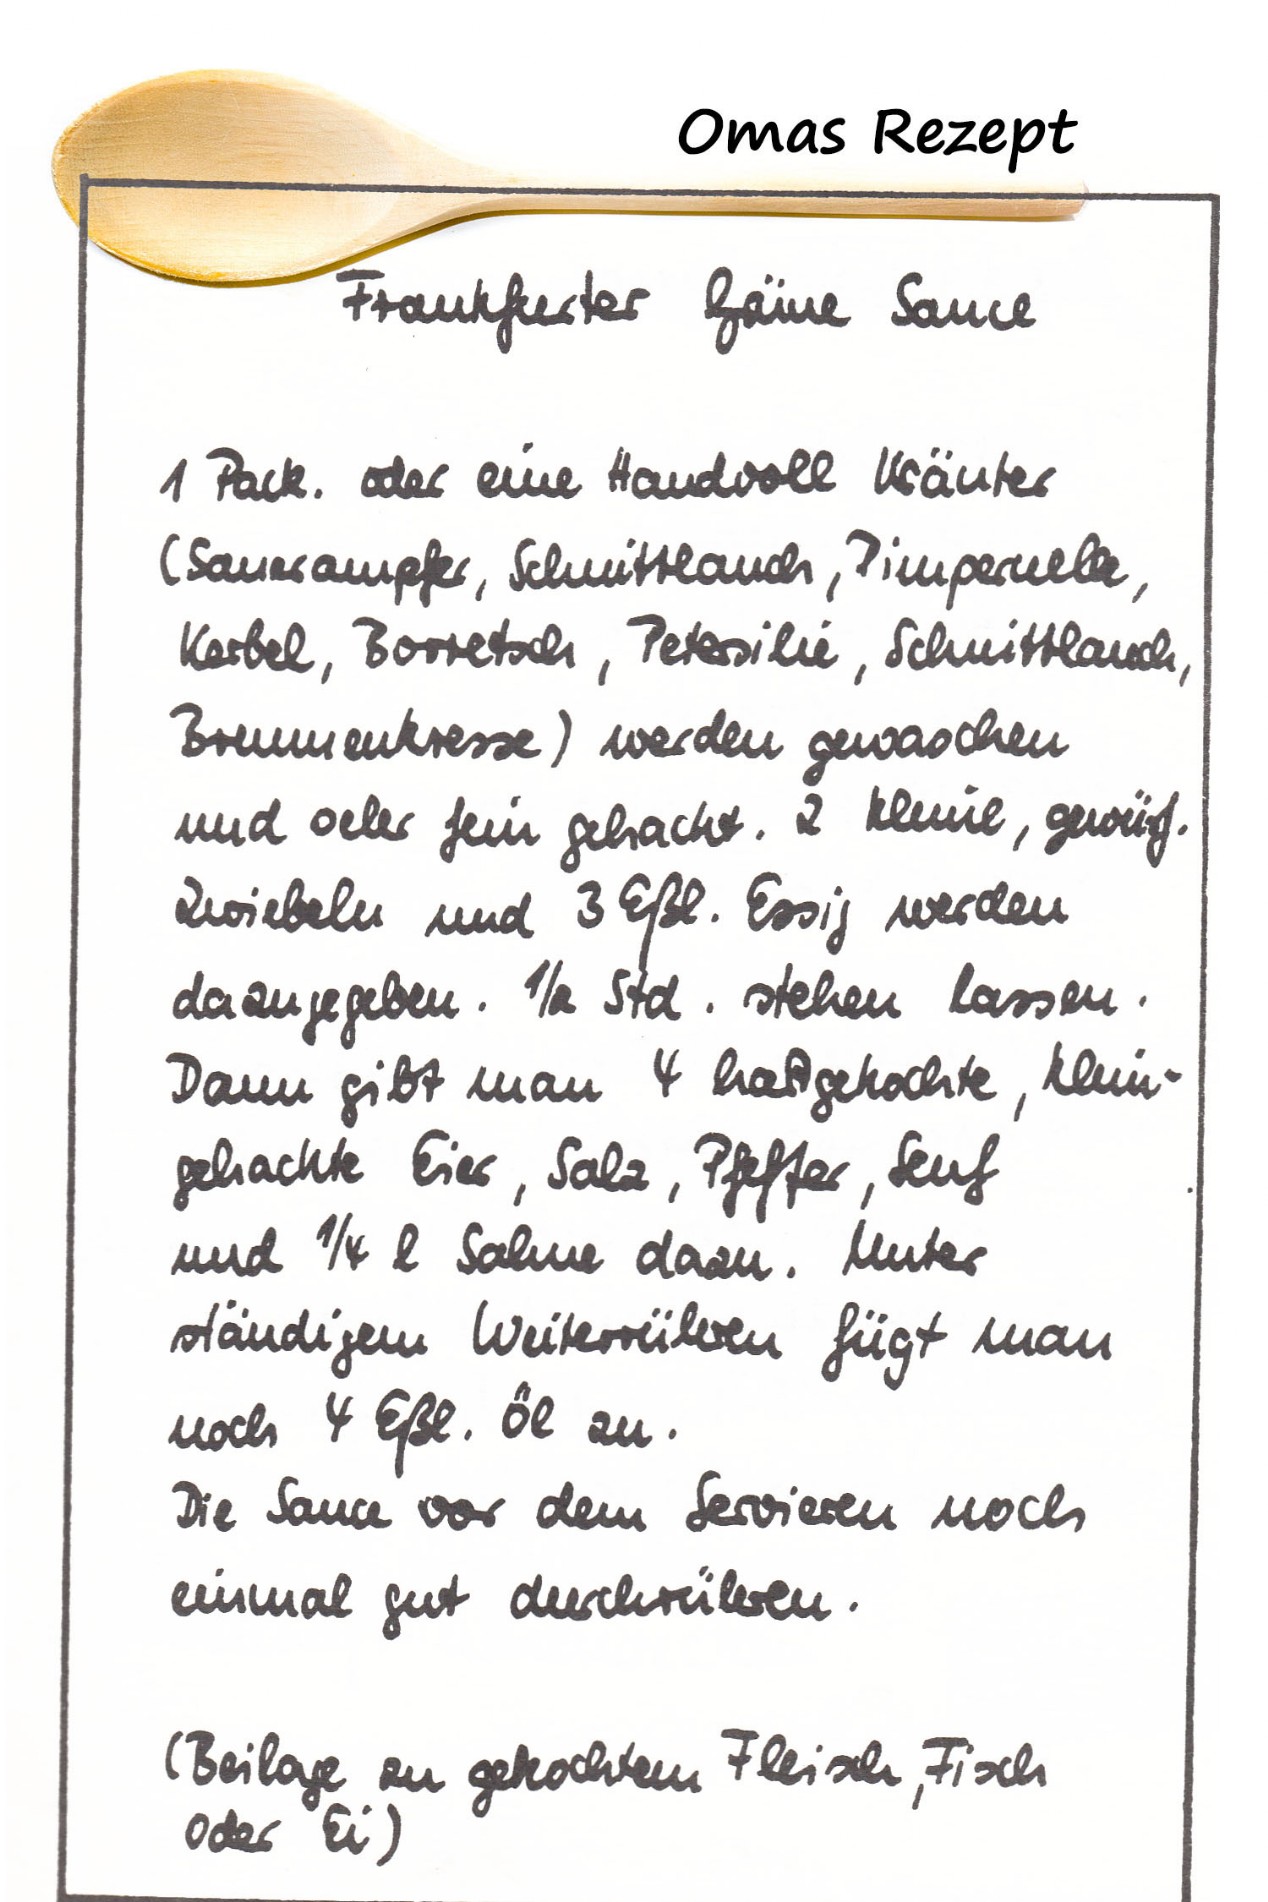 Omas Rezept
Frankfurter Grüne Sauce
1 Pack. oder eine Handvoll Kräuter
(Sauerampfer, Schnittlauch, Pimpernelle,
Kerbel, Borretsch, Petersilie, Schnittlauch,
Brunnenkresse) werden gewaschen
und sehr fein gehackt. 2 kleine, gewürf.
Zwiebeln und 3 Eßl. Essig werden
dazugegeben. 1/2 Std. stehen lassen.
Dann gibt man 4 hartgekochte, klein-
gehackte Eier, Salz, Pfeffer, Senf
und 1/4 l Sahne dazu. Unter
ständigem Weiterrühren fügt man
noch 4 Eßl. Öl zu.
Die Sauce vor dem Servieren noch
einmal gut durchrühren.
(Beilage zu gekochtem Fleisch, Fisch
oder Ei)